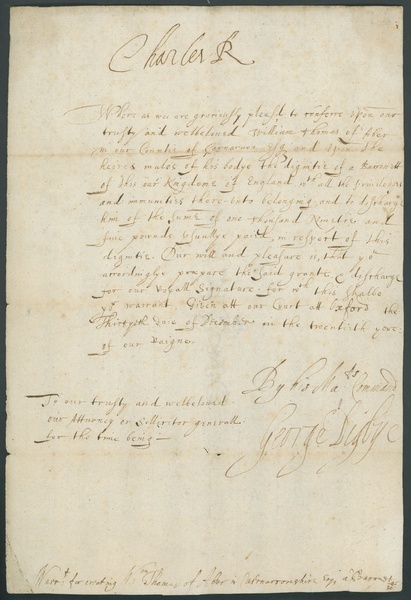 Charles R
Where as we are graciously pleasd to conferre upon our
trusty and welbeloved William Thomas of Aber
in our Countie of Carnarvon Esq and upon the
heires males of his bodye the dignitie of a Baronett
of this our Kingdome of England, wth all the priviledges
and immunities there-unto belonging, and to discharge
him of the sume of one thousand Nineties and
five pounds usually paied, in respect of this
dignitie. Our will and pleasure is, that yo
accordinglye prepare the said grante & discharge
for our Royall Signature. for wch this shalbe
yor warrant. Given att our Court att Oxford the
Thirtieth daie of December in the twentieth yere
of our Raigne.
By his Mats Command
George Digbye
To our trusty and welbeloved
our Attorney or Sollicitor generall
for the time being
Warrt for creating Wm Thomas of Aber in Carnarvonshire Esqr a Baronet